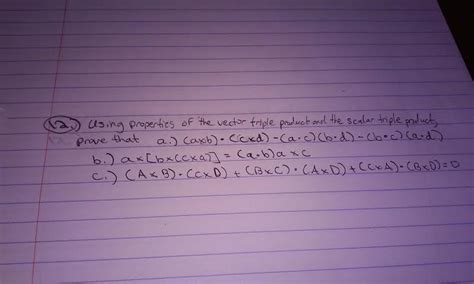 12.) Using properties of the vector triple product and the scalar triple product,
prove that a.) (axb)·(cxd)=(a·c)(b·d)-(b·c)(a·d)
b.) ax[bx(cxa)]=(a·b)axc
c.) (AxB)·(CxD)+(BxC)·(AxD)+(CxA)·(BxD)=0